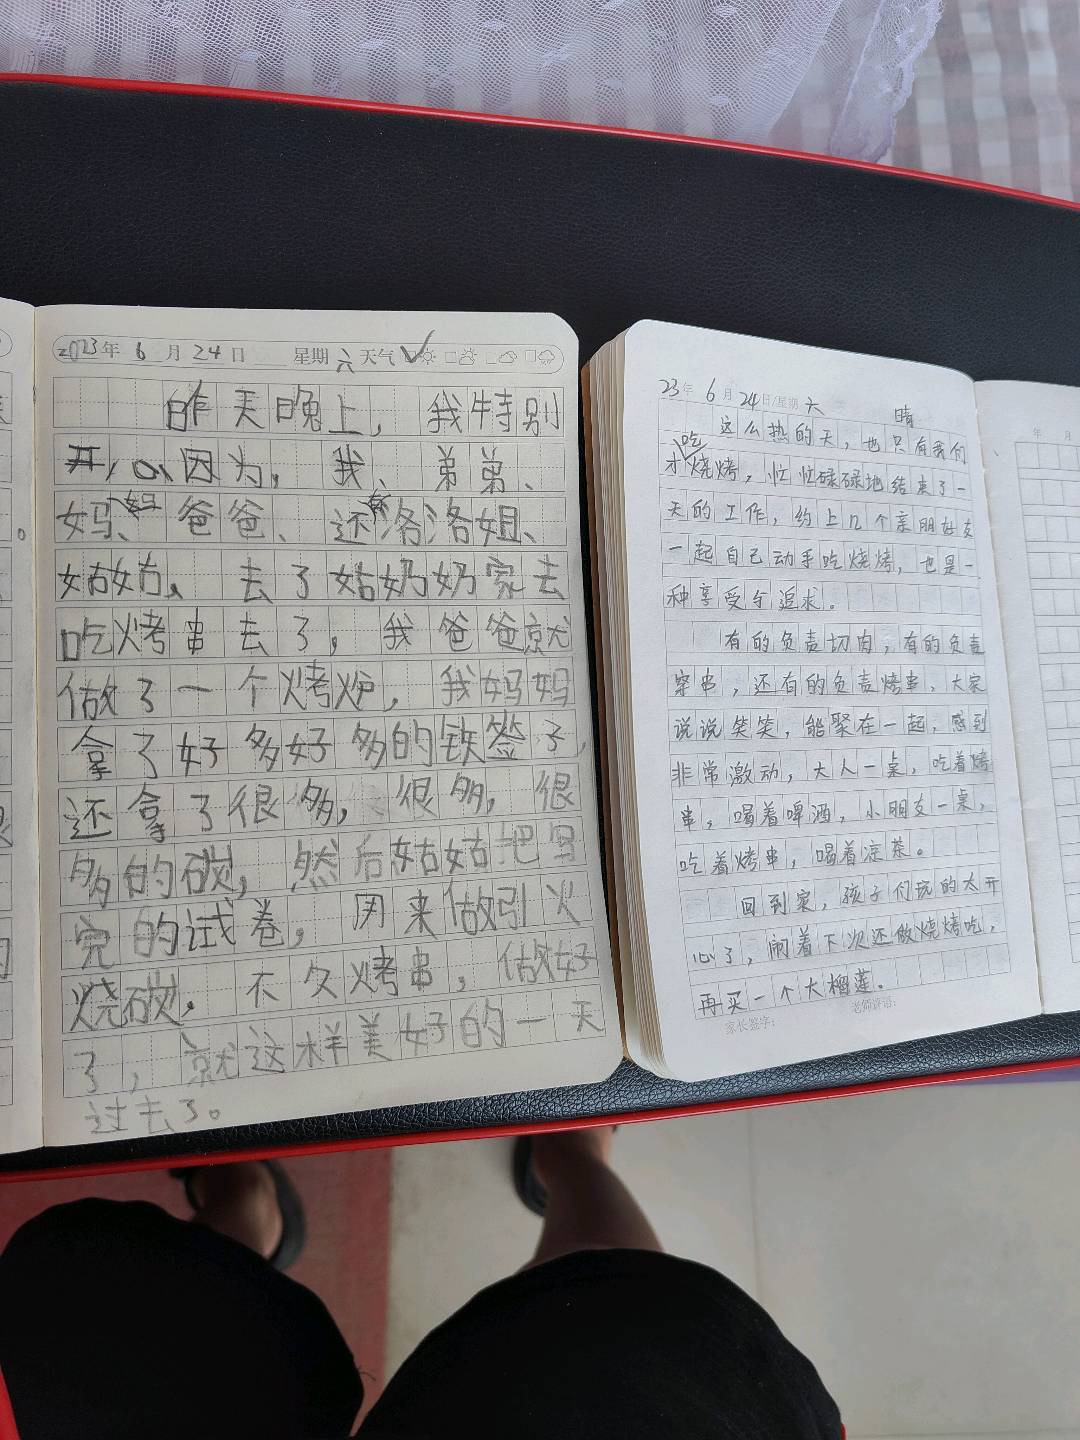 2023年 6月 24日 星期六 天气 ✓
昨天晚上，我特别
开心，因为，我、弟弟、
妈妈、爸爸、还有洛洛姐、
姑姑、去了姑奶奶家去
吃烤串去了，我爸爸就
做了一个烤炉，我妈妈
拿了好多好多的铁签子，
还拿了很多，很多，很
多的碳，然后姑姑把写
完的试卷，用来做引火
烧碳，不久烤串，做好
了，就这样美好的一天
过去了。
23年 6月 24日/星期六 晴
这么热的天，也只有我们
才吃烧烤，忙忙碌碌地结束了一
天的工作，约上几个亲朋好友
一起自己动手吃烧烤，也是一
种享受与追求。
有的负责切肉，有的负责
穿串，还有的负责烤串、大家
说说笑笑，能聚在一起，感到
非常激动，大人一桌，吃着烤
串，喝着啤酒，小朋友一桌，
吃着烤串，喝着凉茶。
回到家，孩子们玩的太开
心了，闹着下次还做烧烤吃，
再买一个大榴莲。
家长签字： 老师评语：
年 月